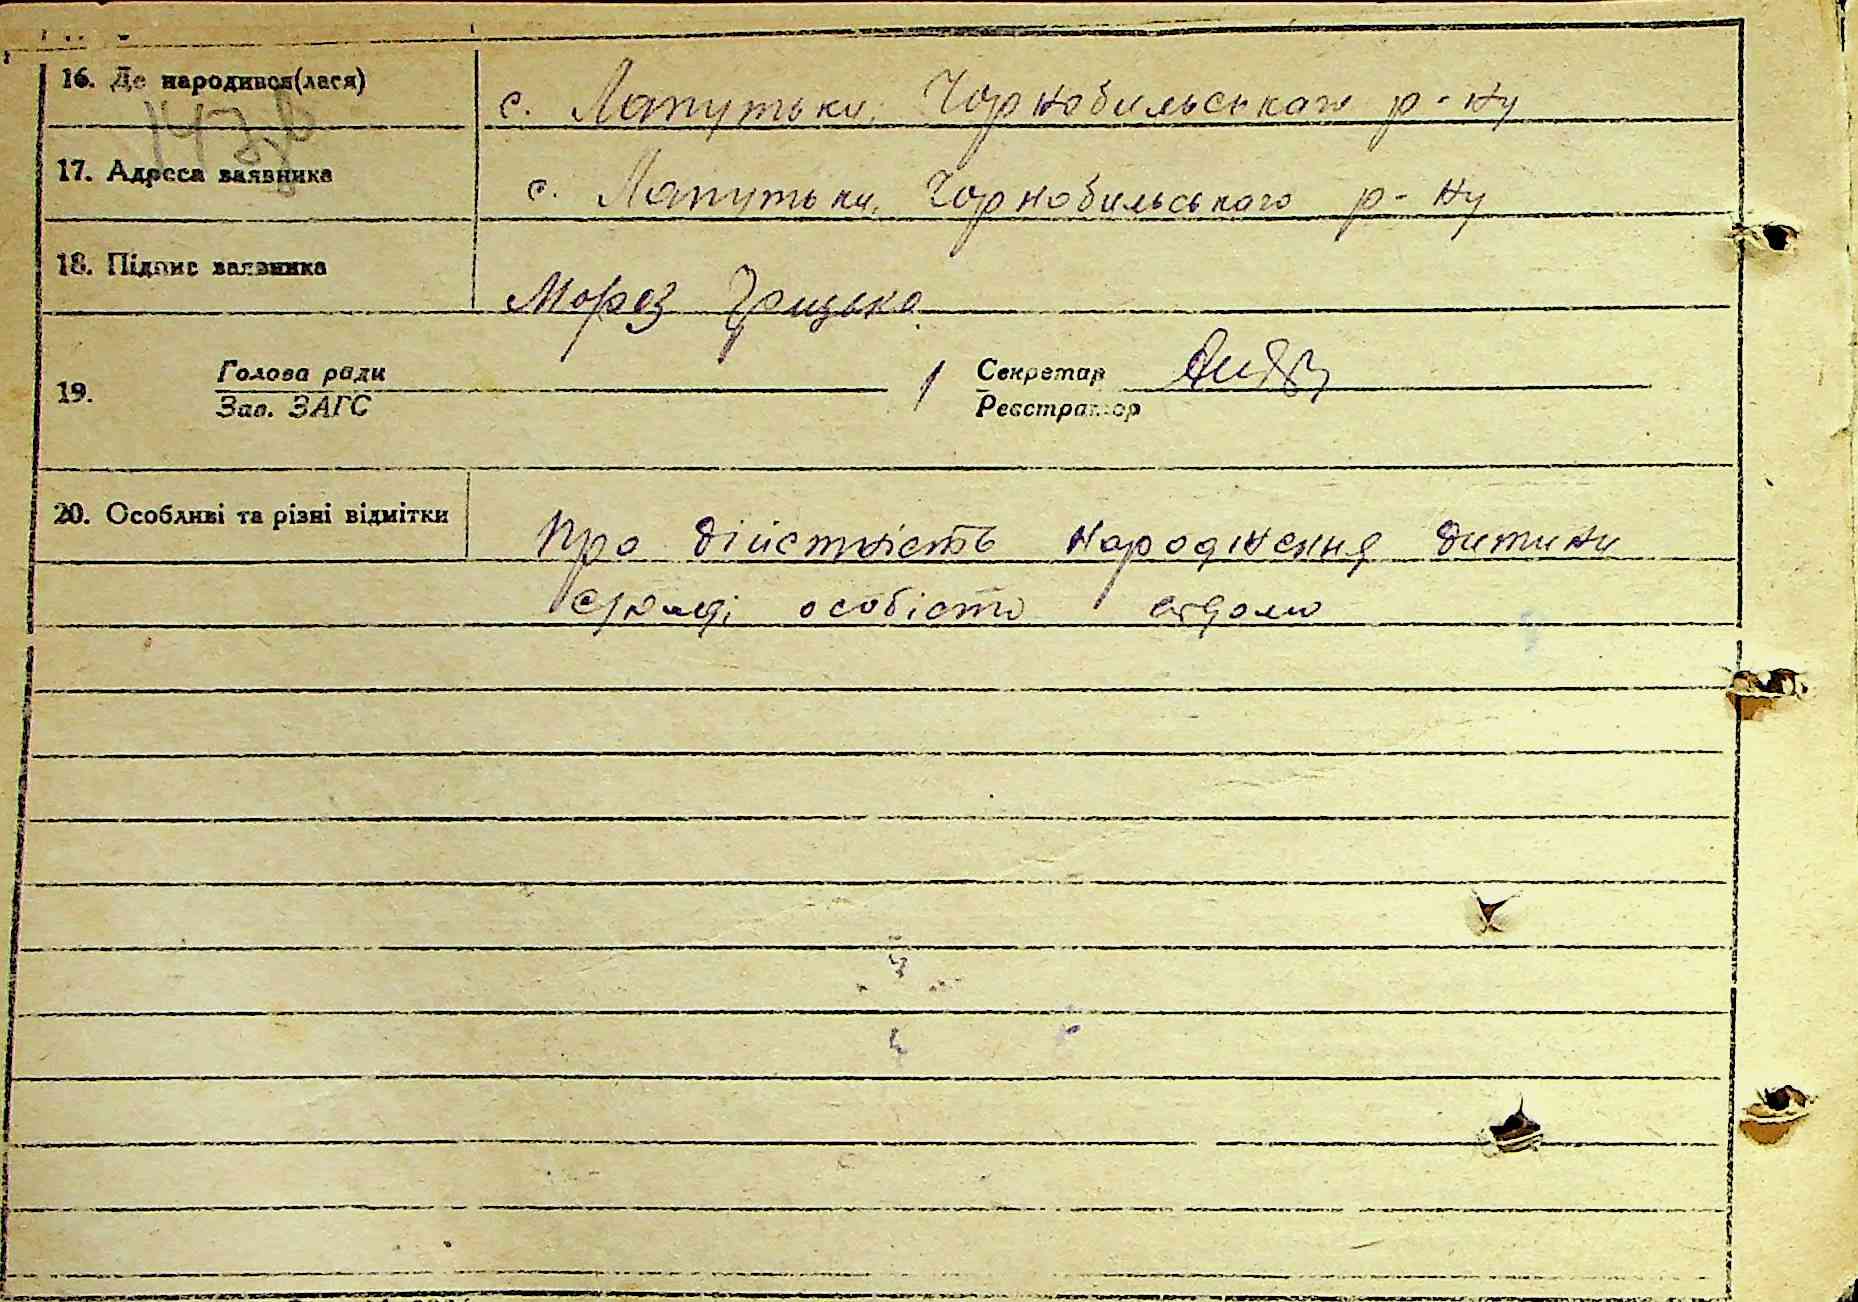 16. Де народився(лася) с. Лапутьки, Чорнобильського р-ну
17. Адреса заявника с. Лапутьки, Чорнобильського р-ну
18. Підпис заявника Мороз Грицько
19. Голова ради Секретар
Зав. ЗАГС Реєстратор
20. Особливі та різні відмітки Про дійстність народження дитини
сулраді особісто відомо